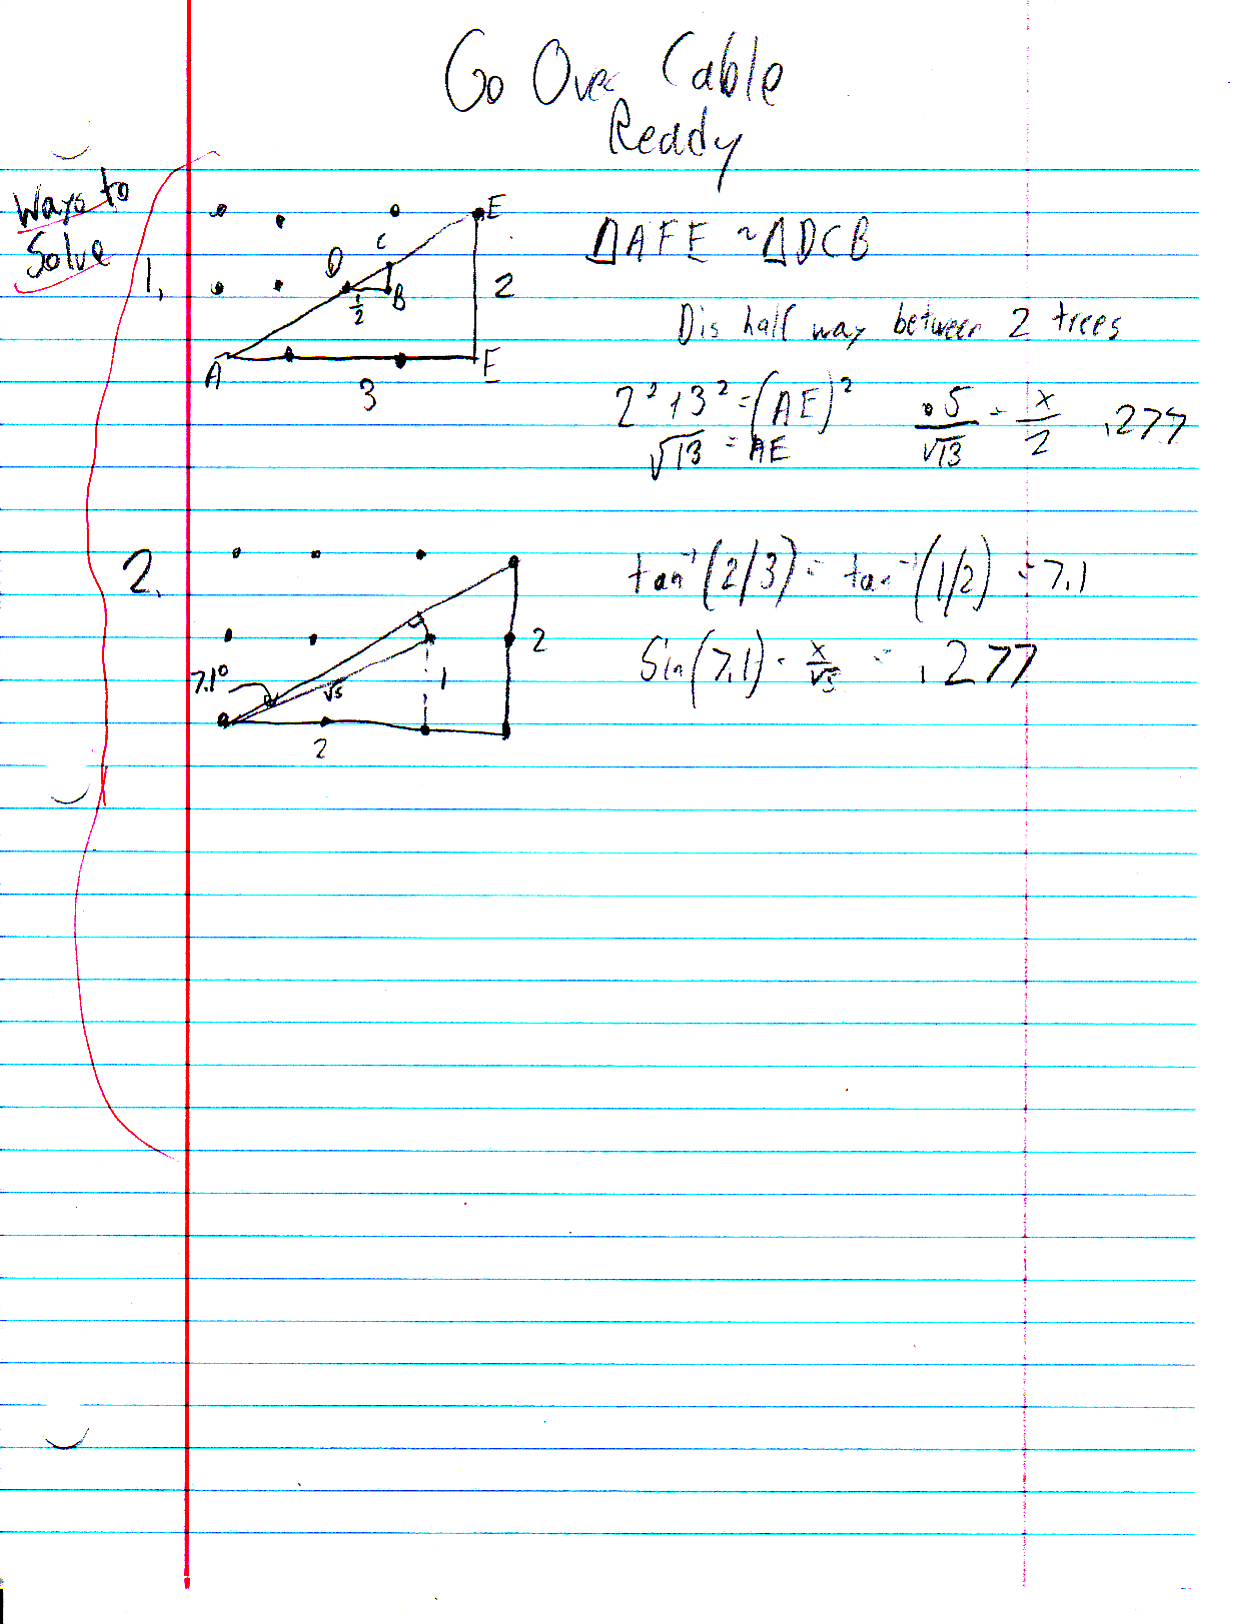 Go Over Cable
Ready
Ways to
Solve
1.
E
C
D
B
1/2
2
A
E
3
△AFE ~ △DCB
D is half way between 2 trees
2² + 3² = (AE)²
√13 = AE
.5/√13 = x/2 .277
2.
7.1°
√5
1
2
2
tan⁻¹(2/3) - tan⁻¹(1/2) = 7.1
Sin(7.1) = x/√5 = .277